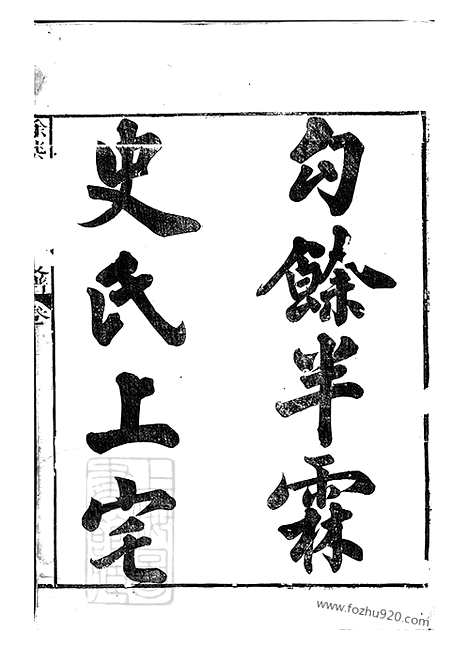 勾餘半霖
史氏上宅
www.fozhu920.com